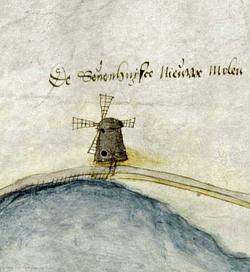 De Sevenhuijsce Nieuwe Molen